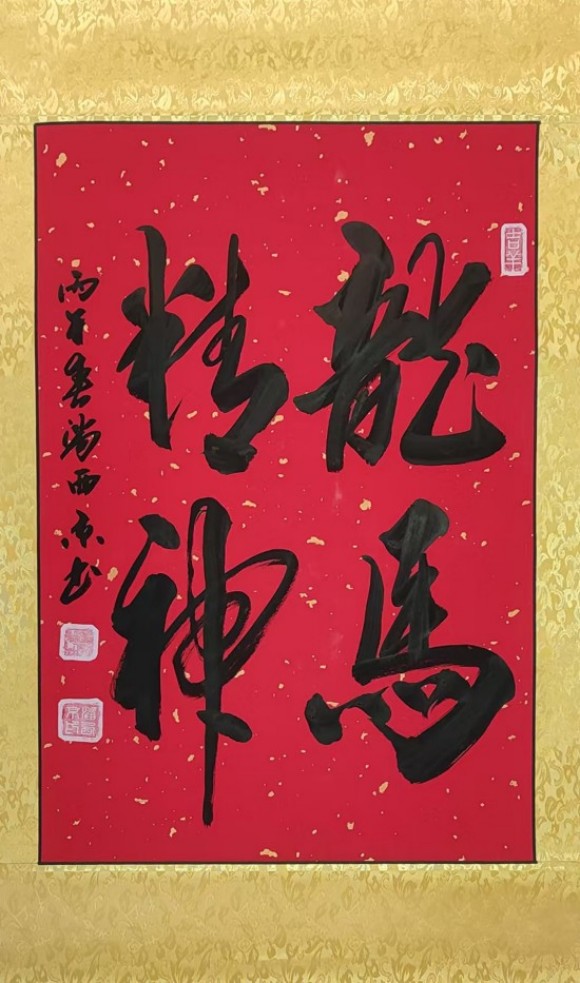 龍馬
精神
丙午春西京书